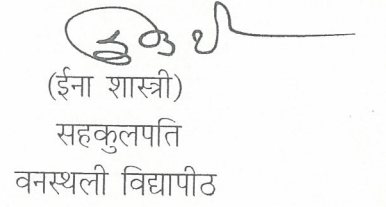 (ईना शास्त्री)
सहकुलपति
वनस्थली विद्यापीठ